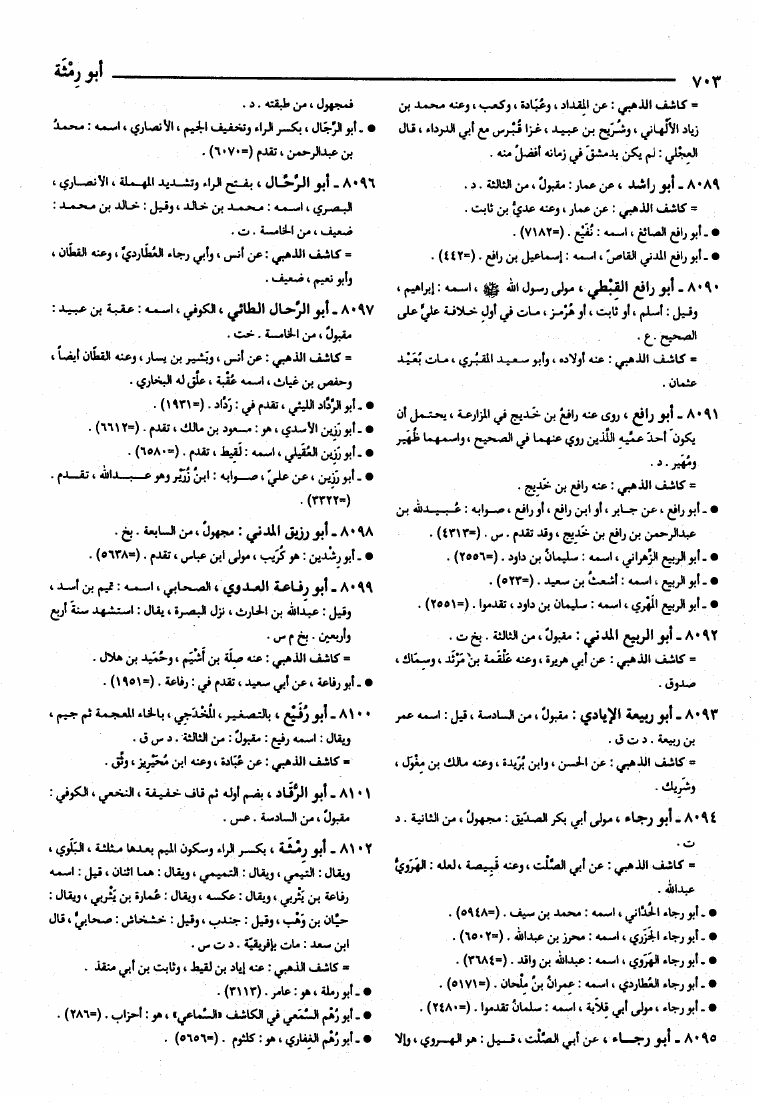 ٧٠٣ أبو رِمْثَة
= كاشف الذهبي : عن المِقداد ، وعُبَادة ، وكعب ، وعنه محمد بن
زياد الأَلْهاني ، وشُرَيح بن عبيد ، غزا قُبْرس مع أبي الدرداء ، قال
العِجْلي : لم يكن بدمشقَ في زمانه أفضلُ منه .
٨٠٨٩ ـ أبو راشد ، عن عمار : مقبولٌ ، من الثالثة . د .
= كاشف الذهبي : عن عمار ، وعنه عديُّ بن ثابت .
● ـ أبو رافع الصائغ ، اسمه : نُفَيْع . (=٧١٨٢) .
● ـ أبو رافع المدني القاصّ ، اسمه : إسماعيل بن رافع . (=٤٤٢) .
٨٠٩٠ ـ أبو رافع القِبْطي ، مولى رسول الله ﷺ ، اسمه : إبراهيم ،
وقيل : أسلم ، أو ثابت ، أو هُرْمز ، مات في أول خلافة عليٍّ على
الصحيح . ع .
= كاشف الذهبي : عنه أولاده ، وأبو سعيد المقبُري ، مات بُعَيْد
عثمان .
٨٠٩١ ـ أبو رافع ، روى عنه رافعُ بن خَديج في المزارعة ، يحتمل أن
يكون أحدَ عمَّيه اللَّذين روي عنهما في الصحيح ، واسمهما ظُهَير
ومُهَير . د .
= كاشف الذهبي : عنه رافع بن خَدِيج .
● ـ أبو رافع ، عن جابر ، أو ابن رافع ، أو رافع ، صوابه : عُبيدالله بن
عبدالرحمن بن رافع بن خَدِيج ، وقد تقدم . س . (=٤٣١٣) .
● ـ أبو الربيع الزَّهراني ، اسمه : سليمانُ بن داود . (=٢٥٥٦) .
● ـ أبو الربيع ، اسمه : أشعثُ بن سعيد . (=٥٢٣) .
● ـ أبو الربيع المَهْري ، اسمه : سليمان بن داود ، تقدموا . (=٢٥٥١) .
٨٠٩٢ ـ أبو الربيع المدني : مقبولٌ ، من الثالثة . بخ ت .
= كاشف الذهبي : عن أبي هريرة ، وعنه عَلْقمة بن مَرْثَد ، وسِمَاك ،
صدوق .
٨٠٩٣ ـ أبو ربيعة الإيادي : مقبولٌ ، من السادسة ، قيل : اسمه عمر
بن ربيعة . د ت ق .
= كاشف الذهبي : عن الحسن ، وابن بُرَيدة ، وعنه مالك بن مِغْوَل ،
وشَريك .
٨٠٩٤ ـ أبو رجاء ، مولى أبي بكر الصدّيق : مجهولٌ ، من الثانية . د
ت .
= كاشف الذهبي : عن أبي الصَّلْت ، وعنه قَبِيصة ، لعله : الهَرَويُّ
عبدالله .
● ـ أبو رجاء الحُدَّاني ، اسمه : محمد بن سيف . (=٥٩٤٨) .
● ـ أبو رجاء الجَزَري ، اسمه : محرز بن عبدالله . (=٦٥٠٢) .
● ـ أبو رجاء الهَرَوي ، اسمه : عبدالله بن واقد . (=٣٦٨٤) .
● ـ أبو رجاء العُطَاردي ، اسمه : عِمرانُ بنُ مِلْحان . (=٥١٧١) .
● ـ أبو رجاء ، مولى أبي قِلابَة ، اسمه : سلمانُ تقدموا . (=٢٤٨٠) .
٨٠٩٥ ـ أبو رجـاء ، عن أبي الصَّلْت ، قيل : هو الهروي ، وإلا
فمجهول ، من طبقته . د .
● ـ أبو الرِّجَال ، بكسر الراء وتخفيف الجيم ، الأنصاري ، اسمه : محمدُ
بن عبدالرحمن ، تقدم (=٦٠٧٠) .
٨٠٩٦ ـ أبو الرَّحَّال ، بفتح الراء وتشديد المهملة ، الأنصاري ،
البصري ، اسمه : محمد بن خالد ، وقيل : خالد بن محمد :
ضعيف ، من الخامسة . ت .
= كاشف الذهبي : عن أنس ، وأبي رجاء العُطَارديّ ، وعنه القطَّان ،
وأبو نعيم ، ضعيف .
٨٠٩٧ ـ أبو الرَّحال الطائي ، الكوفي ، اسمه : عقبة بن عبيد :
مقبولٌ ، من الخامسة . خت .
= كاشف الذهبي : عن أنس ، وبَشير بن يسار ، وعنه القطَّان أيضاً ،
وحفص بن غياث ، اسمه عُقْبة ، علَّق له البخاري .
● ـ أبو الرَّدَّاد الليثي ، تقدم في : رَدَّاد . (=١٩٣١) .
● ـ أبو رَزِين الأسدي ، هو : مسعود بن مالك ، تقدم . (=٦٦١٢) .
● ـ أبو رَزِين العُقَيلي ، اسمه : لَقيط ، تقدم . (=٦٥٨٠) .
● ـ أبو رَزِين ، عن عليّ ، صوابه : ابنُ زُرَيْر وهو عبدالله ، تقدم .
(=٣٣٢٢) .
٨٠٩٨ ـ أبو رزيق المدني : مجهولٌ ، من السابعة . بخ .
● ـ أبو رِشْدين : هو كُرَيب ، مولى ابن عباس ، تقدم . (=٥٦٣٨) .
٨٠٩٩ ـ أبو رِفاعة العدوي ، الصحابي ، اسمه : تميم بن أسد ،
وقيل : عبدالله بن الحارث ، نزل البصرة ، يقال : استشهد سنة أربع
وأربعين . بخ م س .
= كاشف الذهبي : عنه صِلَة بن أَشْيَم ، وحُمَيد بن هلال .
● ـ أبو رفاعة ، عن أبي سعيد ، تقدم في : رفاعة . (=١٩٥١) .
٨١٠٠ ـ أبو رُفَيْع ، بالتصغير ، المُخْدَجي ، بالخاء المعجمة ثم جيم ،
ويقال : اسمه رفيع : مقبولٌ : من الثالثة . د س ق .
= كاشف الذهبي : عن عُبَادة ، وعنه ابن مُحَيْريز ، وثِّق .
٨١٠١ ـ أبو الرُّقَاد ، بضم أوله ثم قاف خفيفة ، النخعي ، الكوفي :
مقبولٌ ، من السادسة . عس .
٨١٠٢ ـ أبو رِمْثَة ، بكسر الراء وسكون الميم بعدها مثلثة ، البَلَوي ،
ويقال : التيمي ، ويقال : التميمي ، ويقال : هما اثنان ، قيل : اسمه
رفاعة بن يَثْربي ، ويقال : عكسه ، ويقال : عُمارة بن يَثْربي ، ويقال :
حيَّان بن وَهْب ، وقيل : جندب ، وقيل : خشخاش : صحابيٌّ ، قال
ابن سعد : مات بإفريقيّة . د ت س .
= كاشف الذهبي : عنه إياد بن لقيط ، وثابت بن أبي منقذ .
● ـ أبو رملة ، هو : عامر . (=٣١١٣) .
● ـ أبو رُهْم السَّمَعي في الكاشف «السَّماعي» ، هو : أحزاب . (=٢٨٦) .
● ـ أبو رُهْم الغِفاري ، هو : كلثوم . (=٥٦٥٦) .